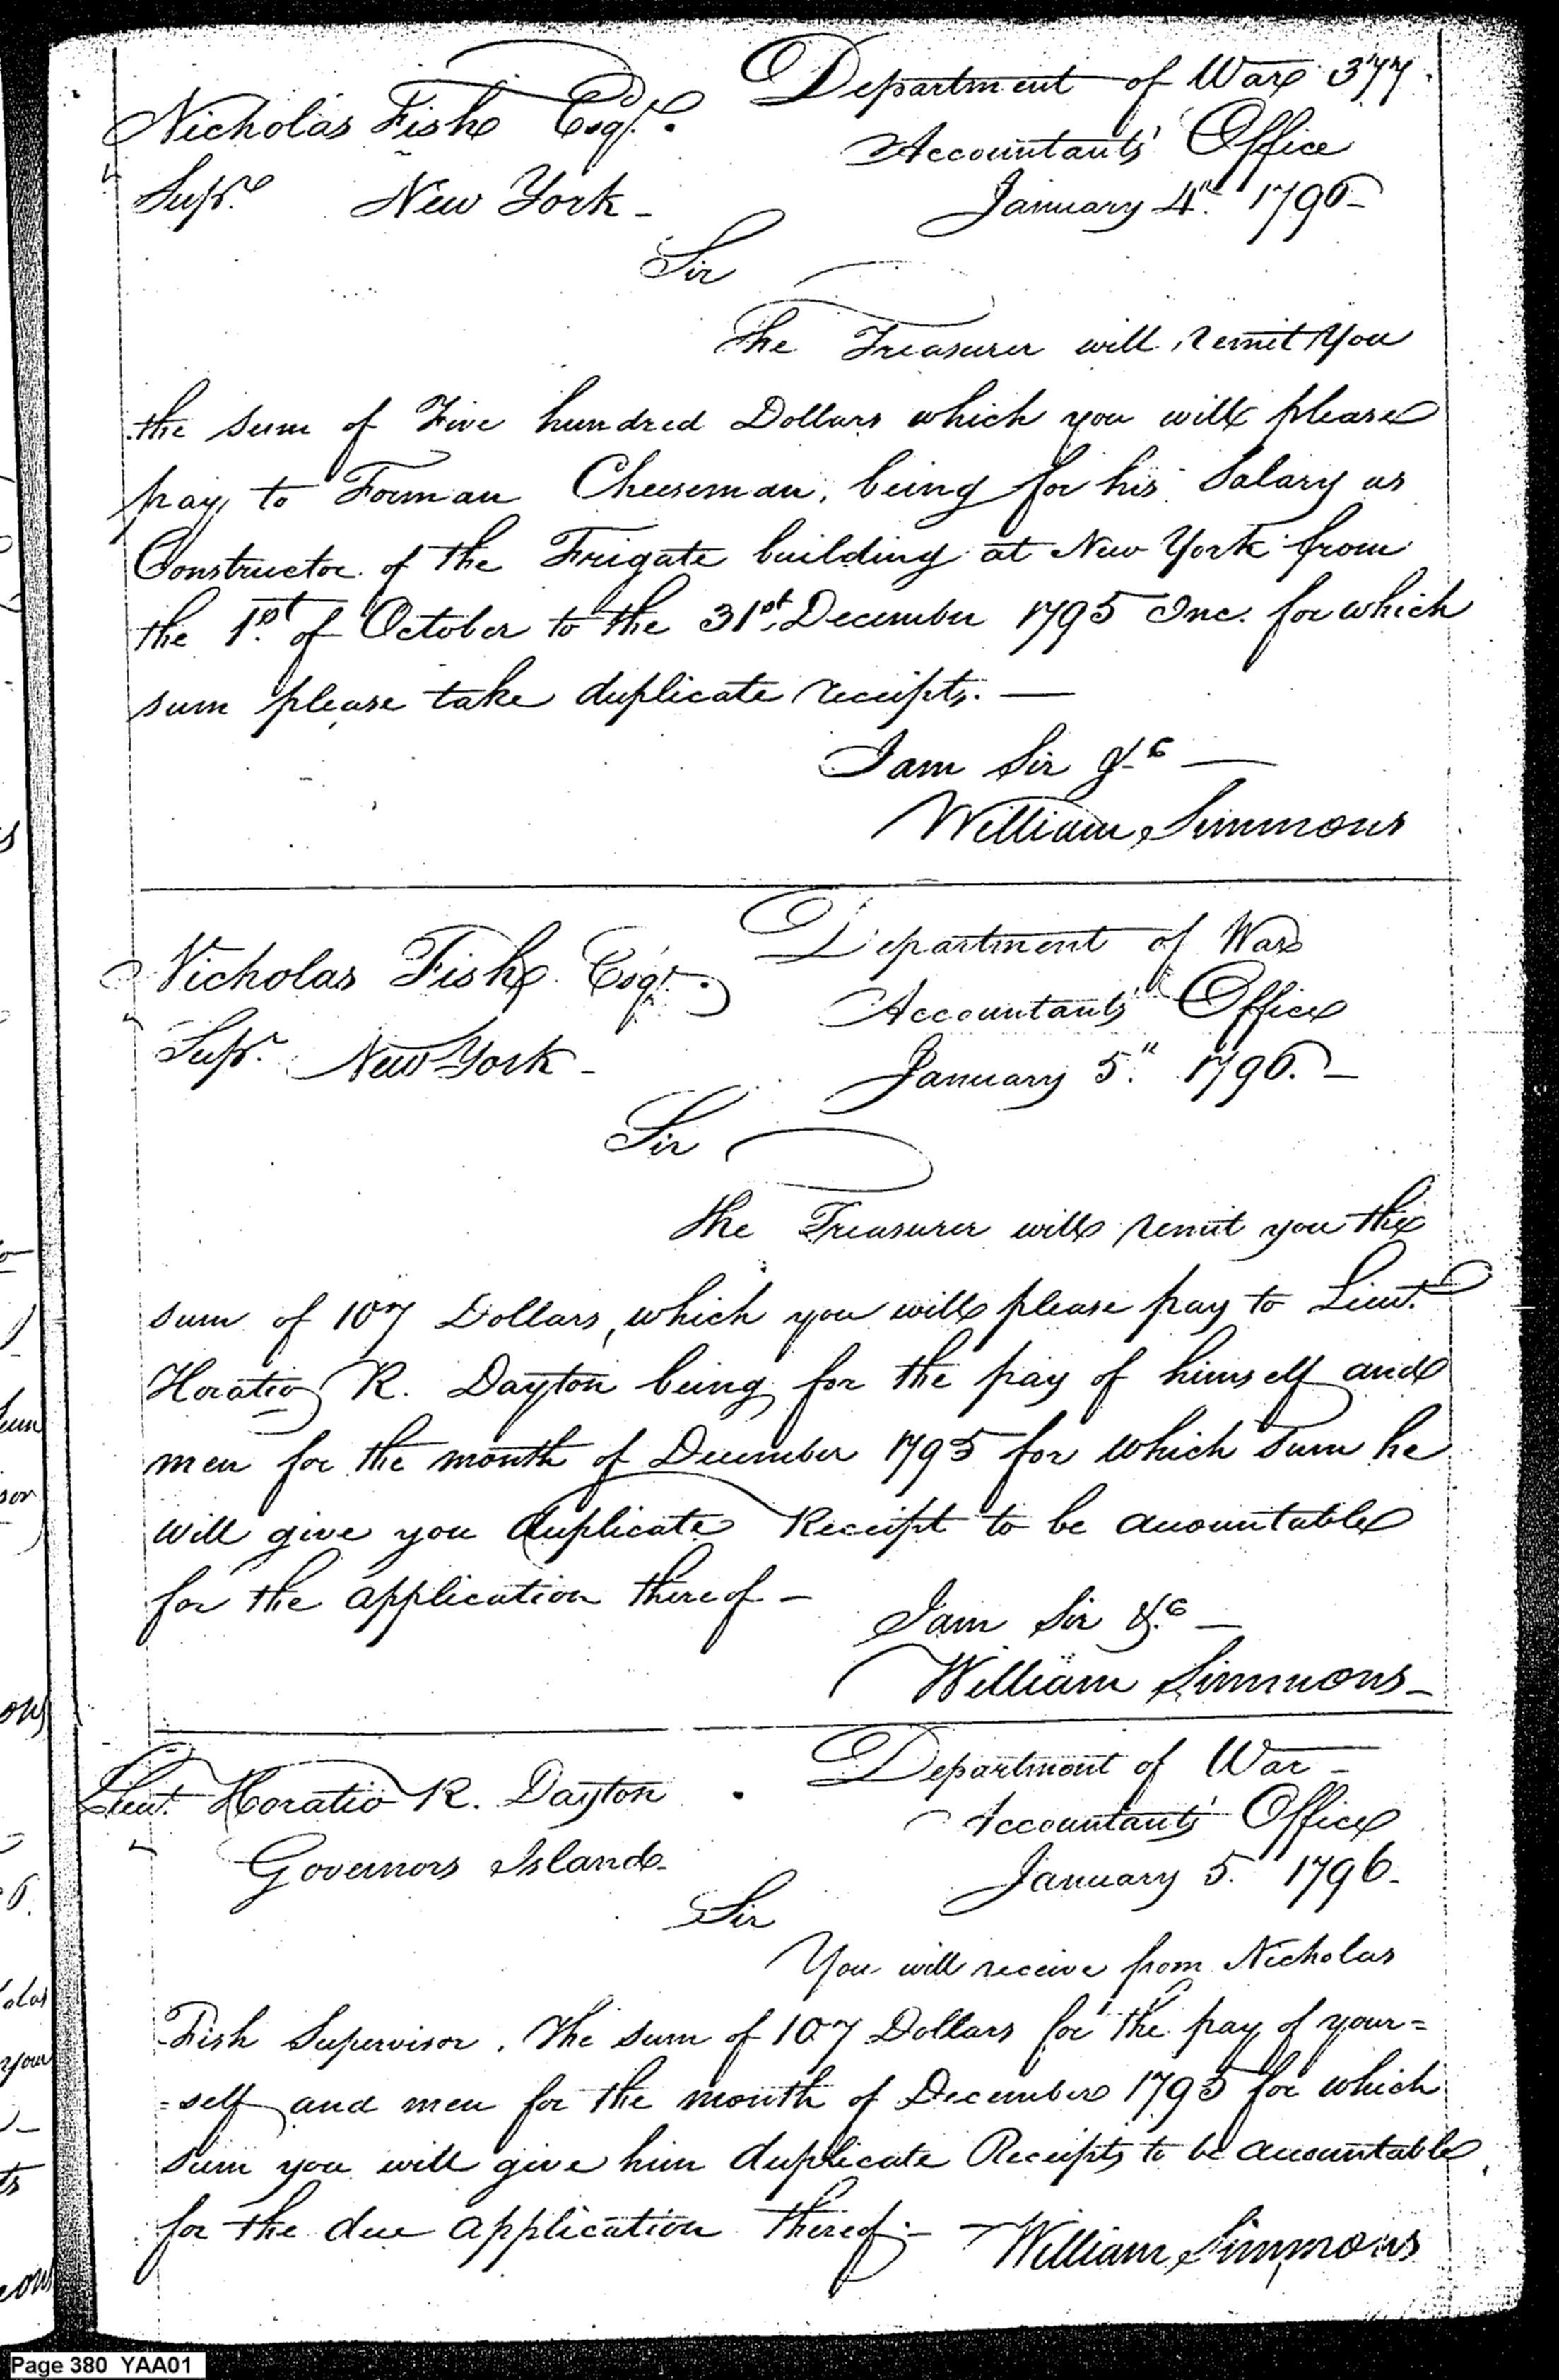 Department of War 377.
Nicholas Fish Esqr.
Accountants' Office
Supr. New York -
January 4th. 1796 -
Sir
The Treasurer will remit You
the sum of Five hundred Dollars which you will please
pay to Forman Cheeseman, being for his Salary as
Constructor of the Frigate building at New York from
the 1st. of October to the 31st. December 1795 Inc. for which
sum please take duplicate receipts. —
I am Sir &c —
William Simmons
Department of War
Nicholas Fish Esqr.
Accountants' Office
Supr. New York -
January 5." 1796. -
Sir
The Treasurer will remit you the
sum of 107 Dollars, which you will please pay to Lieut.
Horatio R. Dayton being for the pay of himself and
men for the month of December 1795 for which Sum he
will give you duplicate Receipt to be accountable
for the application thereof -
I am Sir &c -
William Simmons -
Department of War -
Lieut. Horatio R. Dayton
Accountants' Office
Governors Island -
January 5." 1796 -
Sir
You will receive from Nicholas
Fish Supervisor. The sum of 107 Dollars for the pay of your=
=self and men for the month of December 1795 for which
sum you will give him duplicate Receipts to be accountable
for the due application thereof. - William Simmons
Page 380 YAA01